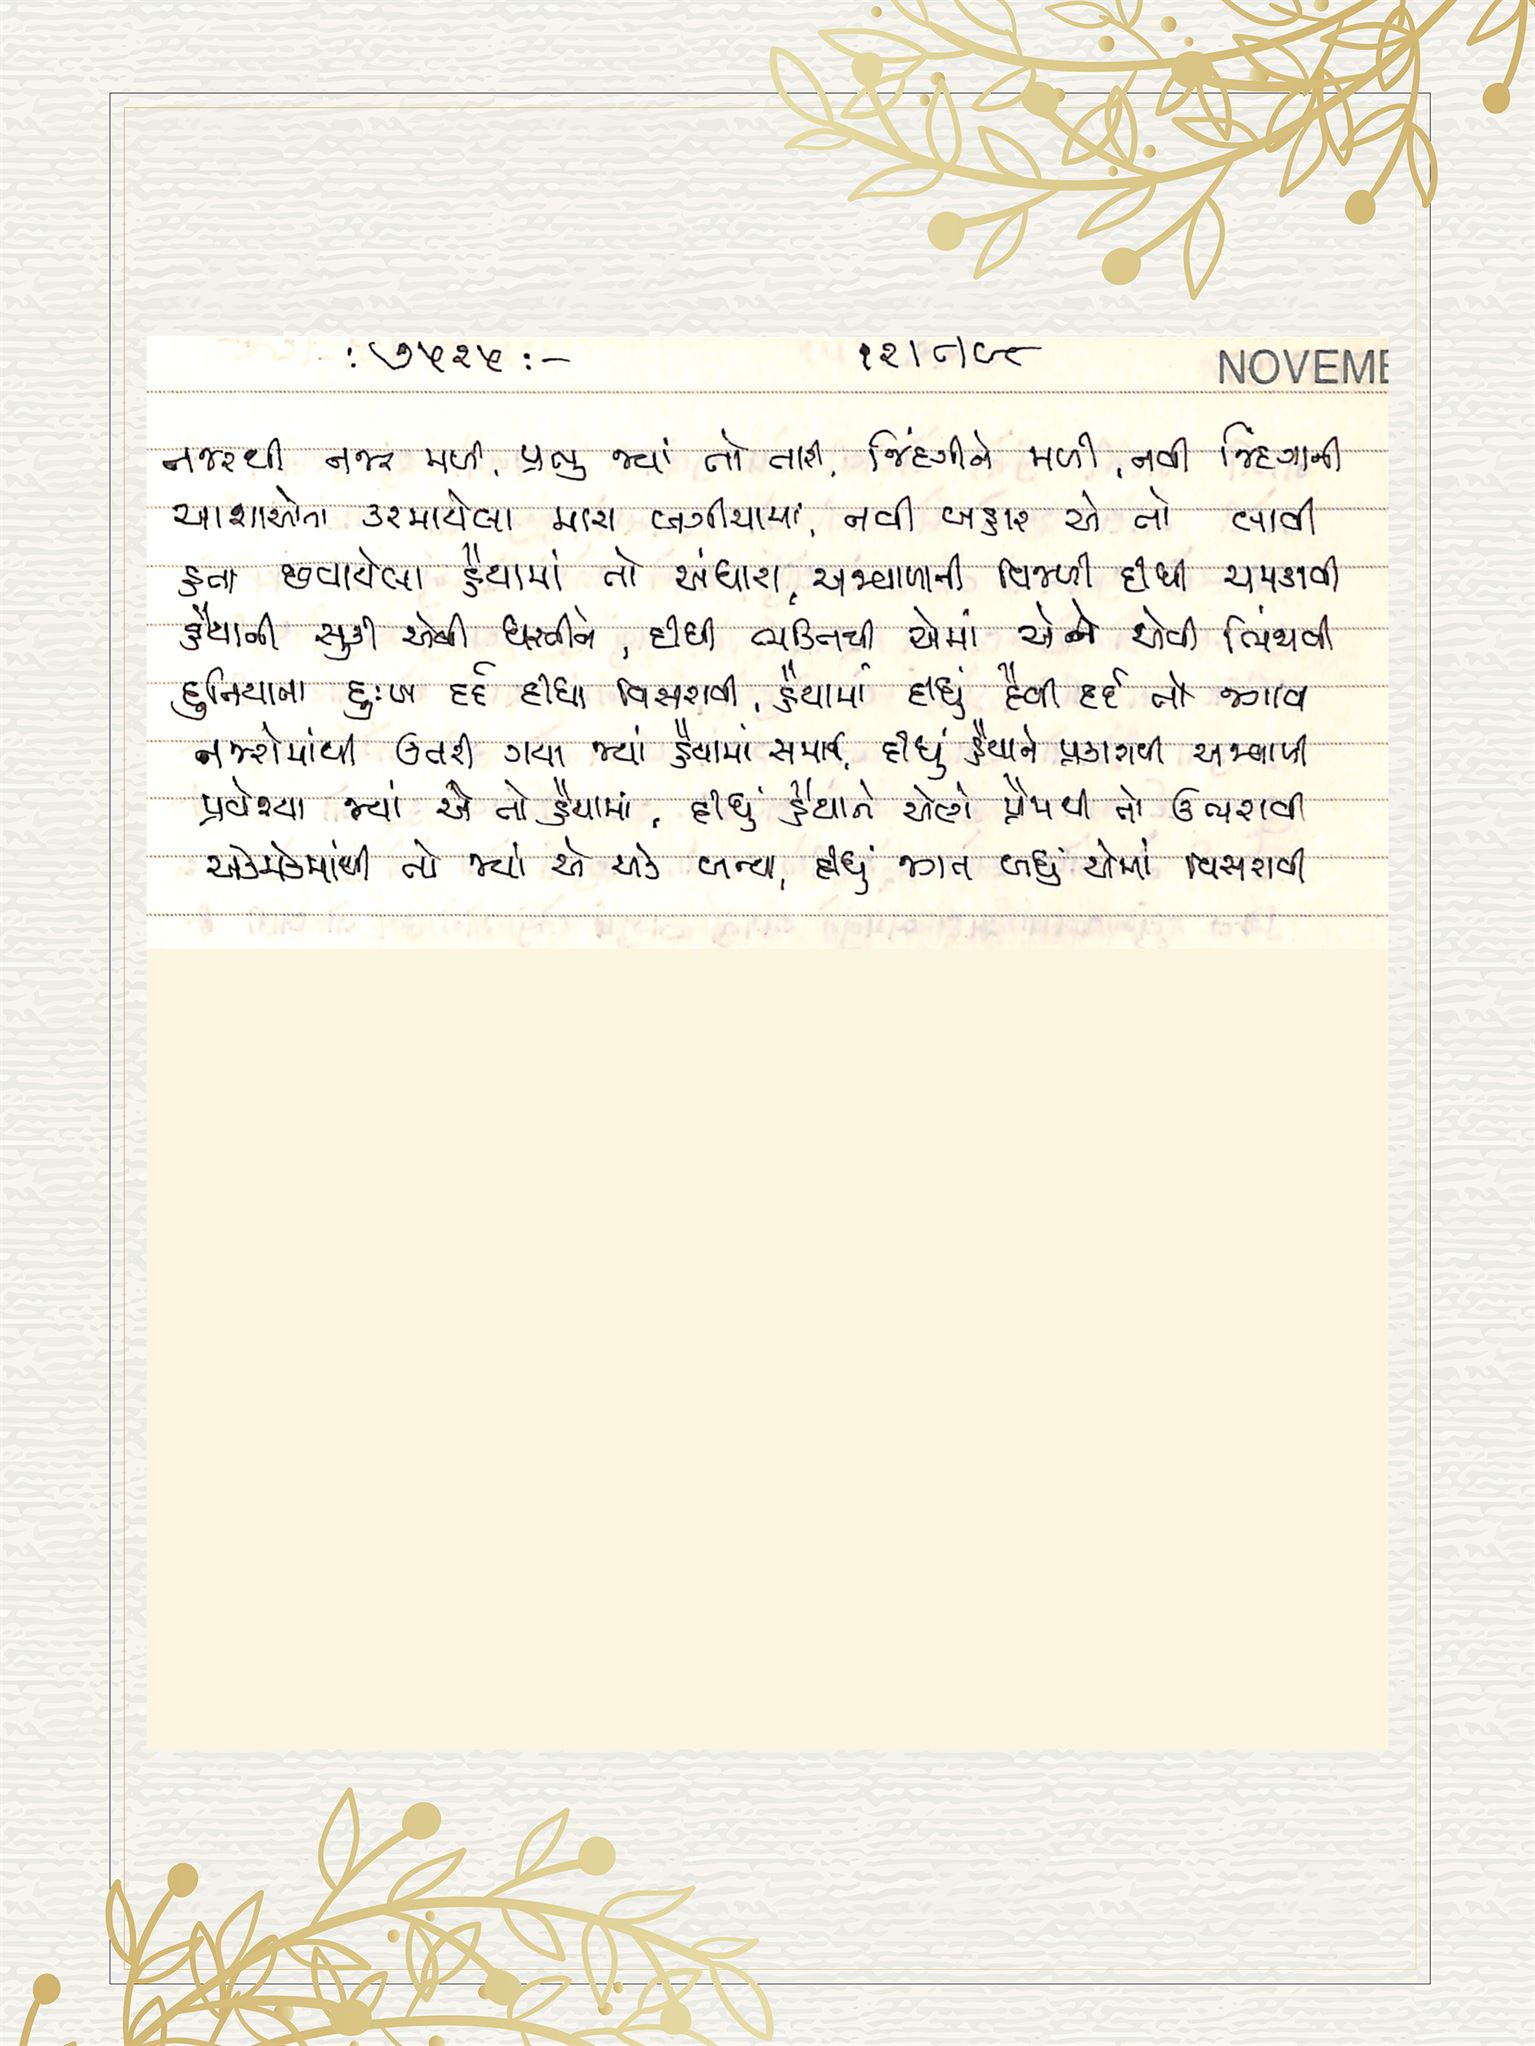 :૭૫૨૫:- ૧૨।૧।૯૮
NOVEME
નજરથી નજર મળી, પ્રભુ જ્યાં તો તારી, જિંદગીને મળી, નવી જિંદગાની
આશાઓના કરમાયેલા મારા બગીચામાં, નવી બહાર એ તો લાવી
હતા છવાયેલા હૈયામાં તો અંધારા, અજવાળાની વિજળી દીધી ચમકાવી
હૈયાની સુકી એવી ધરતીને, દીધી એમાં એને એવી સિંચવી
દુનિયાના દુઃખ દર્દ દીધા વિસરાવી, હૈયામાં દીધું દૈવી દર્દ તો જગાવી
નજરોમાંથી ઉતરી ગયા જ્યાં હૈયામાં સમાઈ, દીધું હૈયાને પ્રકાશથી અજવાળી
પ્રવેશ્યા જ્યાં એ તો હૈયામાં, દીધું હૈયાને એણે પ્રેમથી તો ઉભરાવી
એકમેકમાંથી તો જ્યાં એ એક બન્યા, દીધું જગત બધું એમાં વિસરાવી